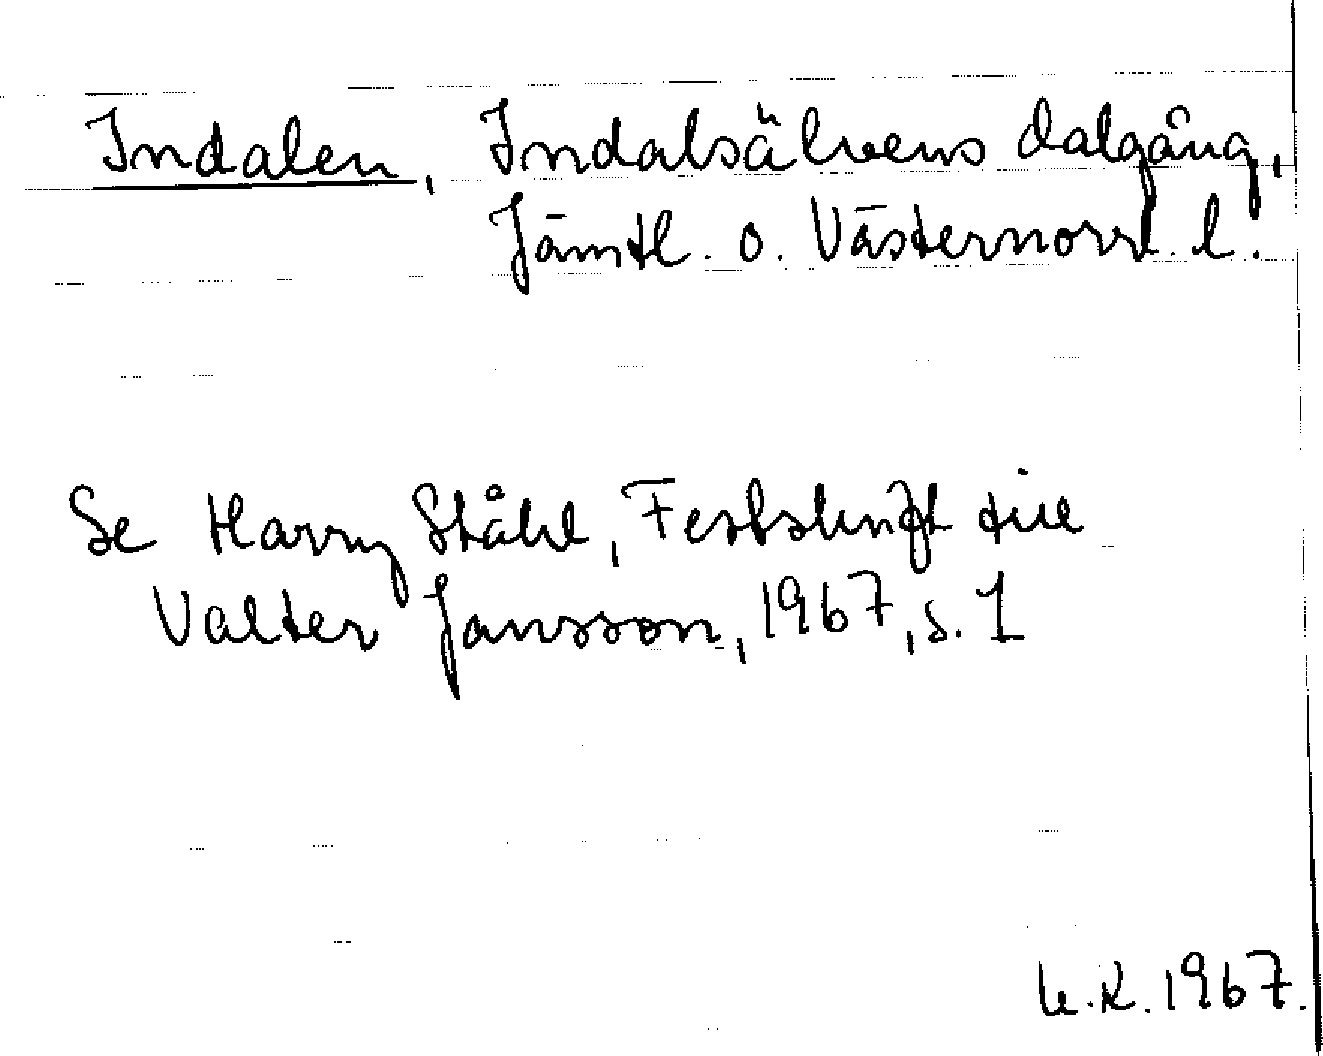 Indalen, Indalsälvens dalgång,
Jämtl. o. Västernorrl. l.
Se Harry Ståhl, Festskrift till
Valter Jansson, 1967, s. 1
K.R. 1967.